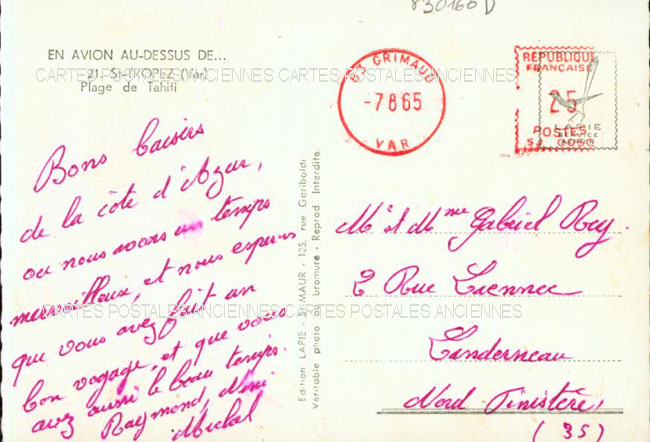 830160 D
EN AVION AU-DESSUS DE...
21. St-TROPEZ (Var)
Plage de Tahiti
CARTES POSTALES ANCIENNES CARTES POSTALES ANCIENNES
83 GRIMAUD
-7 8 65
VAR
REPUBLIQUE
FRANCAISE
25
POSTES
LAPIE
Bons baisers
de la côte d'Azur,
ou nous avons un temps
merveilleux, et nous esperons
que vous avez fait un
bon voyage, et que vous
avez aussi le beau temps.
Raymond, Mimi
Michel
Edition LAPIE - St-MAUR - 125, rue Garibaldi
Véritable photo au bromure - Reprod. Interdite.
Mr et Mme Gabriel Rey.
2 Rue Laennec
CARTES POSTALES ANCIENNES CARTES POSTALES ANCIENNES
Landerneau
Nord Finistère
(35)